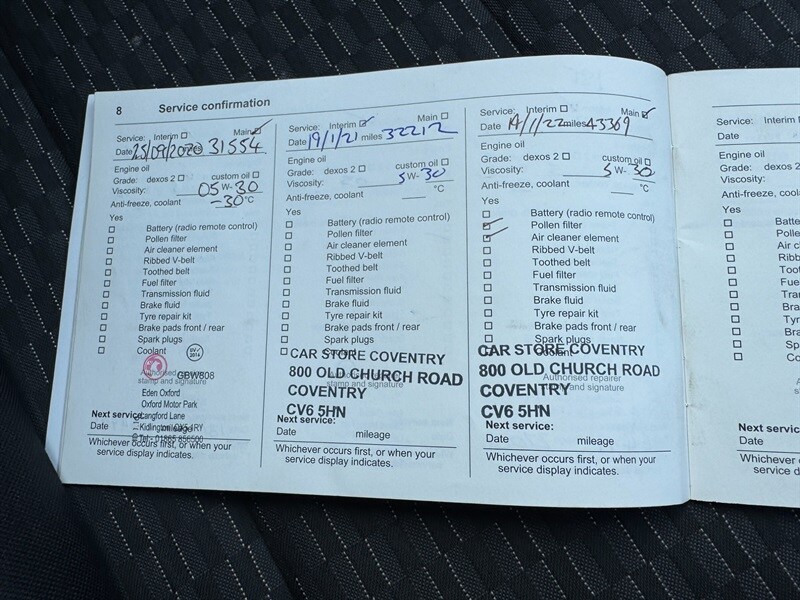 8 Service confirmation
Service: Interim ☐ Main ☑
Date 25/09/2020 miles 31554
Engine oil
Grade: dexos 2 ☐ custom oil ☐
Viscosity: 05 W- 30
Anti-freeze, coolant -30 °C
Yes
☐ Battery (radio remote control)
☐ Pollen filter
☐ Air cleaner element
☐ Ribbed V-belt
☐ Toothed belt
☐ Fuel filter
☐ Transmission fluid
☐ Brake fluid
☐ Tyre repair kit
☐ Brake pads front / rear
☐ Spark plugs
☐ Coolant
GBW808
Authorised repairer
stamp and signature
Eden Oxford
Oxford Motor Park
Langford Lane
Next service:
Kidlington OX5 1RY
Date mileage
Whichever occurs first, or when your
service display indicates.
Service: Interim ☑ Main ☐
Date 19/1/21 miles 32212
Engine oil
Grade: dexos 2 ☐ custom oil ☐
Viscosity: 5 W- 30
Anti-freeze, coolant °C
Yes
☐ Battery (radio remote control)
☐ Pollen filter
☐ Air cleaner element
☐ Ribbed V-belt
☐ Toothed belt
☐ Fuel filter
☐ Transmission fluid
☐ Brake fluid
☐ Tyre repair kit
☐ Brake pads front / rear
☐ Spark plugs
☐ Coolant
CAR STORE COVENTRY
800 OLD CHURCH ROAD
stamp and signature
COVENTRY
CV6 5HN
Next service:
Date mileage
Whichever occurs first, or when your
service display indicates.
Service: Interim ☐ Main ☑
Date 14/1/22 miles 43369
Engine oil
Grade: dexos 2 ☐ custom oil ☐
Viscosity: 5 W- 30
Anti-freeze, coolant °C
Yes
☐ Battery (radio remote control)
☑ Pollen filter
☑ Air cleaner element
☐ Ribbed V-belt
☐ Toothed belt
☐ Fuel filter
☐ Transmission fluid
☐ Brake fluid
☐ Tyre repair kit
☐ Brake pads front / rear
☐ Spark plugs
☐ Coolant
CAR STORE COVENTRY
800 OLD CHURCH ROAD
Authorised repairer
stamp and signature
COVENTRY
CV6 5HN
Next service:
Date mileage
Whichever occurs first, or when your
service display indicates.
Service: Interim
Date
Engine oil
Grade: dexos 2
Viscosity:
Anti-freeze, coolant
Yes
☐ Batt
☐ Polle
☐ Air c
☐ Ribb
☐ Toot
☐ Fue
☐ Tra
☐ Bra
☐ Tyr
☐ Br
☐ Sp
☐ Co
Next servic
Date
Whichever
service d